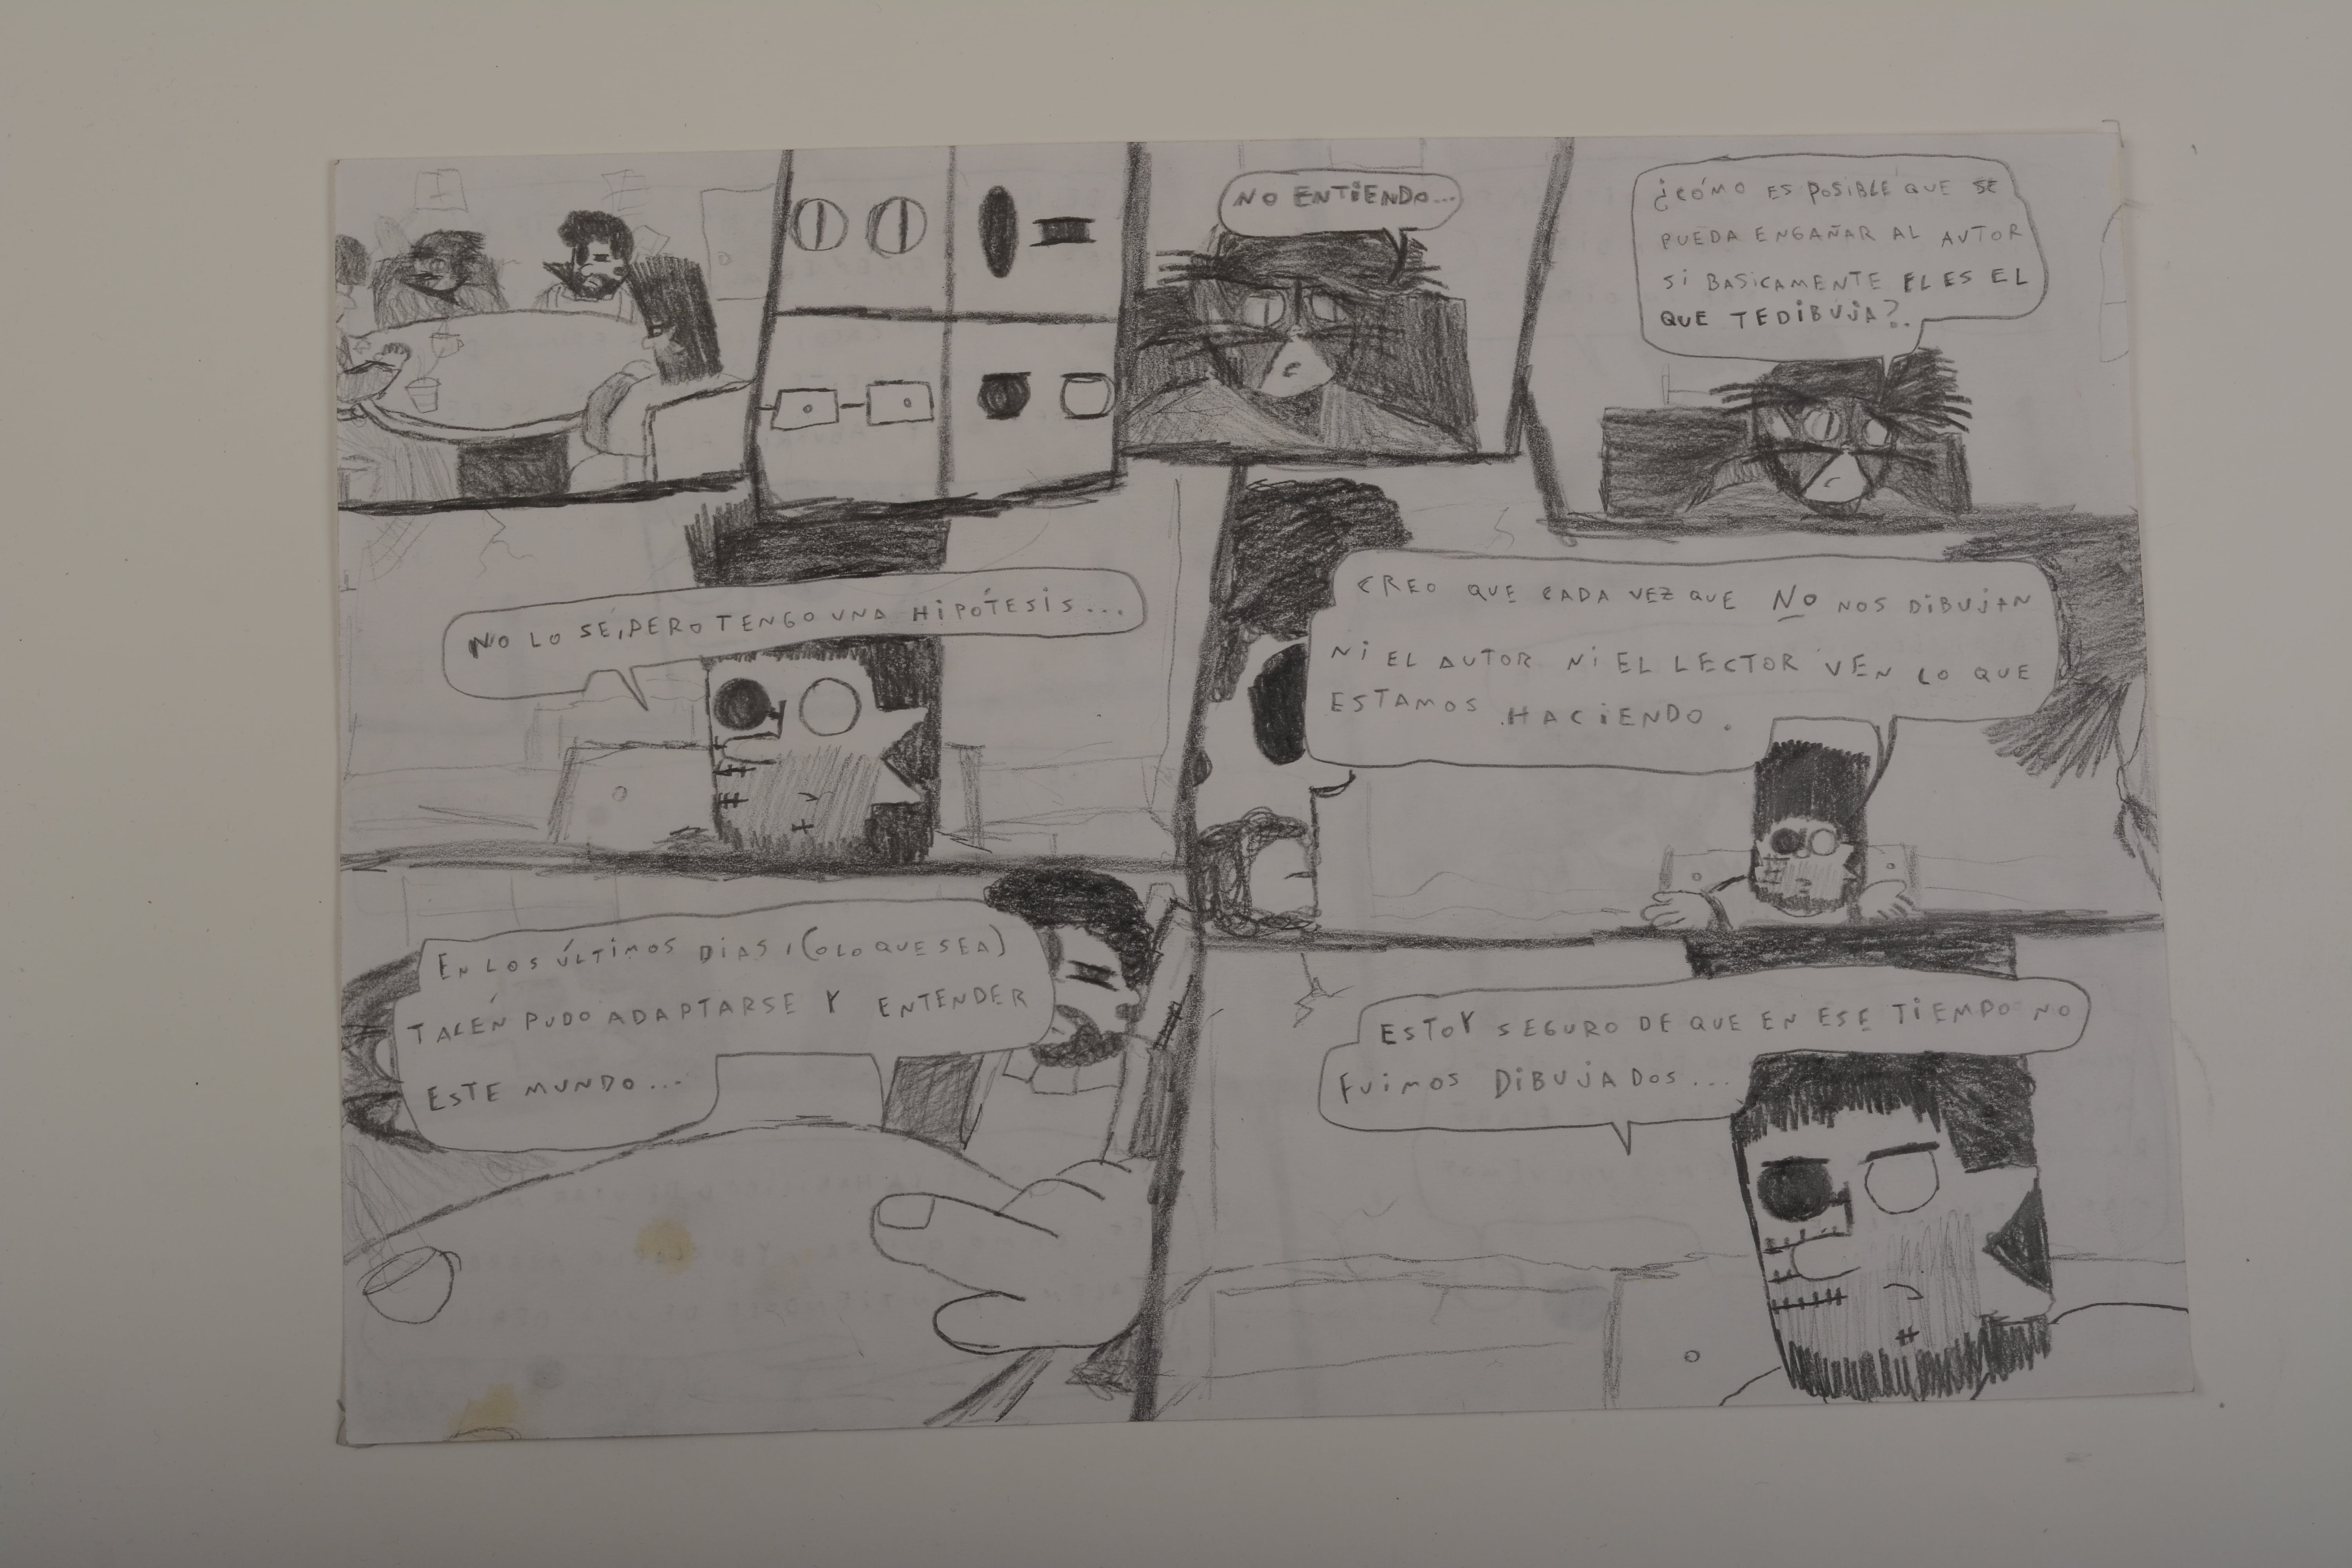 NO ENTIENDO...
¿CÓMO ES POSIBLE QUE SE
PUEDA ENGAÑAR AL AUTOR
SI BASICAMENTE EL ES EL
QUE TE DIBUJA?.
NO LO SÉ, PERO TENGO UNA HIPÓTESIS...
CREO QUE CADA VEZ QUE NO NOS DIBUJAN
NI EL AUTOR NI EL LECTOR VEN LO QUE
ESTAMOS HACIENDO.
EN LOS ÚLTIMOS DIAS, (O LO QUE SEA)
TALÉN PUDO ADAPTARSE Y ENTENDER
ESTE MUNDO...
ESTOY SEGURO DE QUE EN ESE TIEMPO NO
FUIMOS DIBUJADOS...